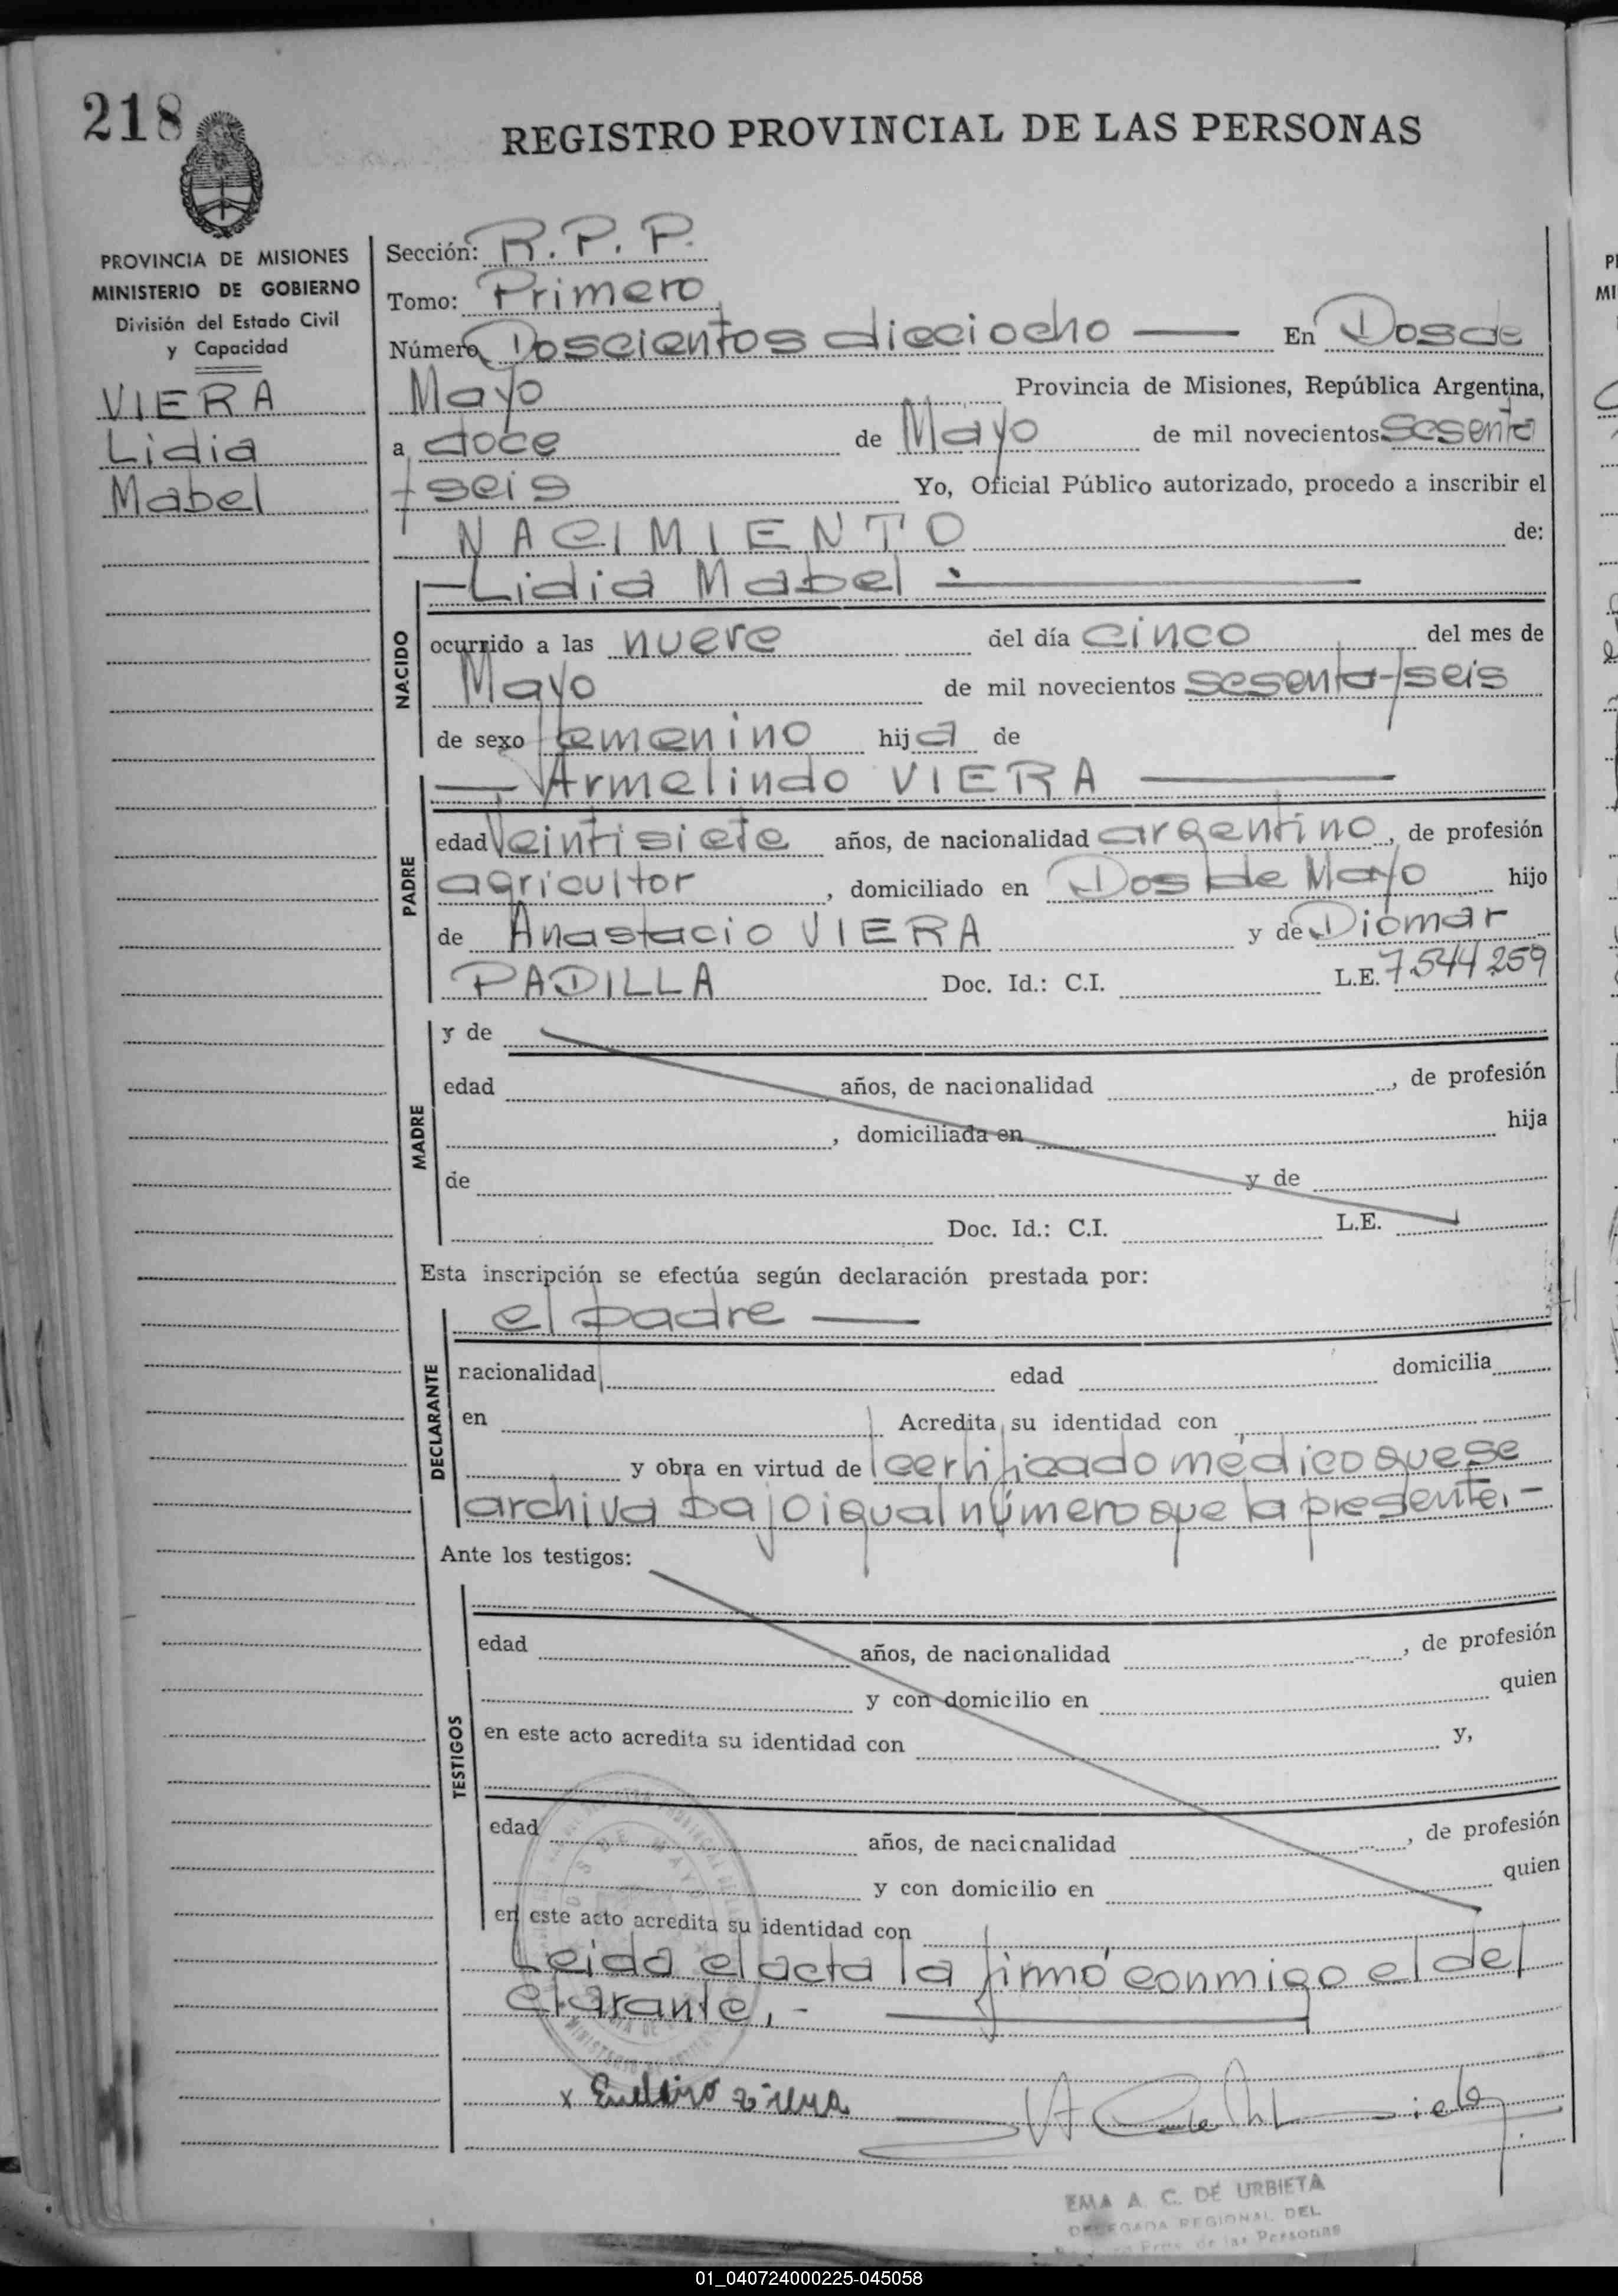 218
REGISTRO PROVINCIAL DE LAS PERSONAS
PROVINCIA DE MISIONES
MINISTERIO DE GOBIERNO
División del Estado Civil
y Capacidad
VIERA
Lidia
Mabel
Sección: R. P. P.
Tomo: Primero
Número Doscientos dieciocho — En Dos de
Mayo Provincia de Misiones, República Argentina,
a doce de Mayo de mil novecientos sesenta
y seis Yo, Oficial Público autorizado, procedo a inscribir el
NACIMIENTO de:
NACIDO
—Lidia Mabel.—
ocurrido a las nueve del día cinco del mes de
Mayo de mil novecientos sesenta y seis
de sexo femenino hija de
PADRE
— Armelindo VIERA —
edad veintisiete años, de nacionalidad argentino, de profesión
agricultor, domiciliado en Dos de Mayo hijo
de Anastacio VIERA y de Diomar
PADILLA Doc. Id.: C.I. L.E. 7.544.259
MADRE
y de
edad años, de nacionalidad , de profesión
, domiciliada en hija
de y de
Doc. Id.: C.I. L.E.
Esta inscripción se efectúa según declaración prestada por:
DECLARANTE
el padre —
nacionalidad edad domicilia
en Acredita su identidad con
y obra en virtud de certificado médico que se
archiva bajo igual número que la presente.-
Ante los testigos:
TESTIGOS
edad años, de nacionalidad , de profesión
y con domicilio en quien
en este acto acredita su identidad con y,
edad años, de nacionalidad , de profesión
y con domicilio en quien
en este acto acredita su identidad con
Leida el acta la firmó conmigo el de
clarante.-
x
EMA A. C. DE URBIETA
DELEGADA REGIONAL DEL
Prov. de las Personas
01_040724000225-045058